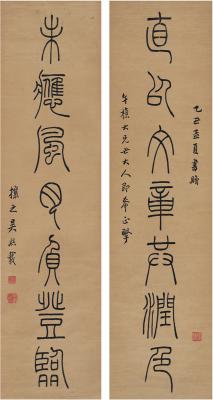 乙丑孟夏書贈
直以文章共潤色
午樵大兄世大人即希正擊
未應風月負登臨
操之吳熙載